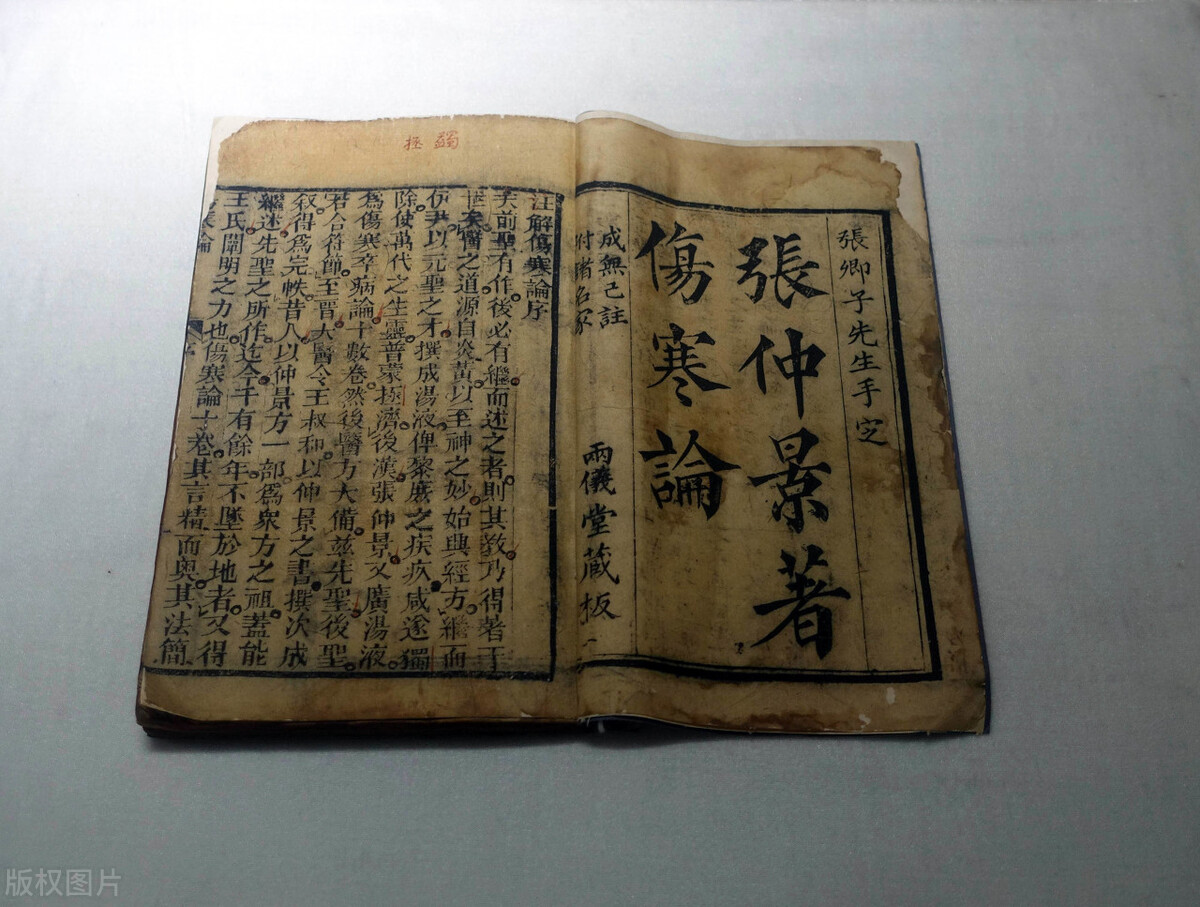 張卿子先生手定
張仲景著
傷寒論
成無己註
附諸名家
兩儀堂藏板
拯 蠲
注解傷寒論序
夫前聖有作後必有繼而述之者則其教乃得著于
世矣醫之道源自炎黃以至神之妙始興經方繼而
伊尹以元聖之才撰成湯液俾黎庶之疾疚咸遂蠲
除使萬代之生靈普蒙拯濟後漢張仲景又廣湯液
爲傷寒卒病論十數卷然後醫方大備茲先聖後聖
若合符節至晉太醫令王叔和以仲景之書撰次成
叙得爲完帙昔人以仲景方一部爲衆方之祖蓋能
繼述先聖之所作迄今千有餘年不墜於地者又得
王氏闡明之力也傷寒論十卷其言精而奧其法簡
版权图片